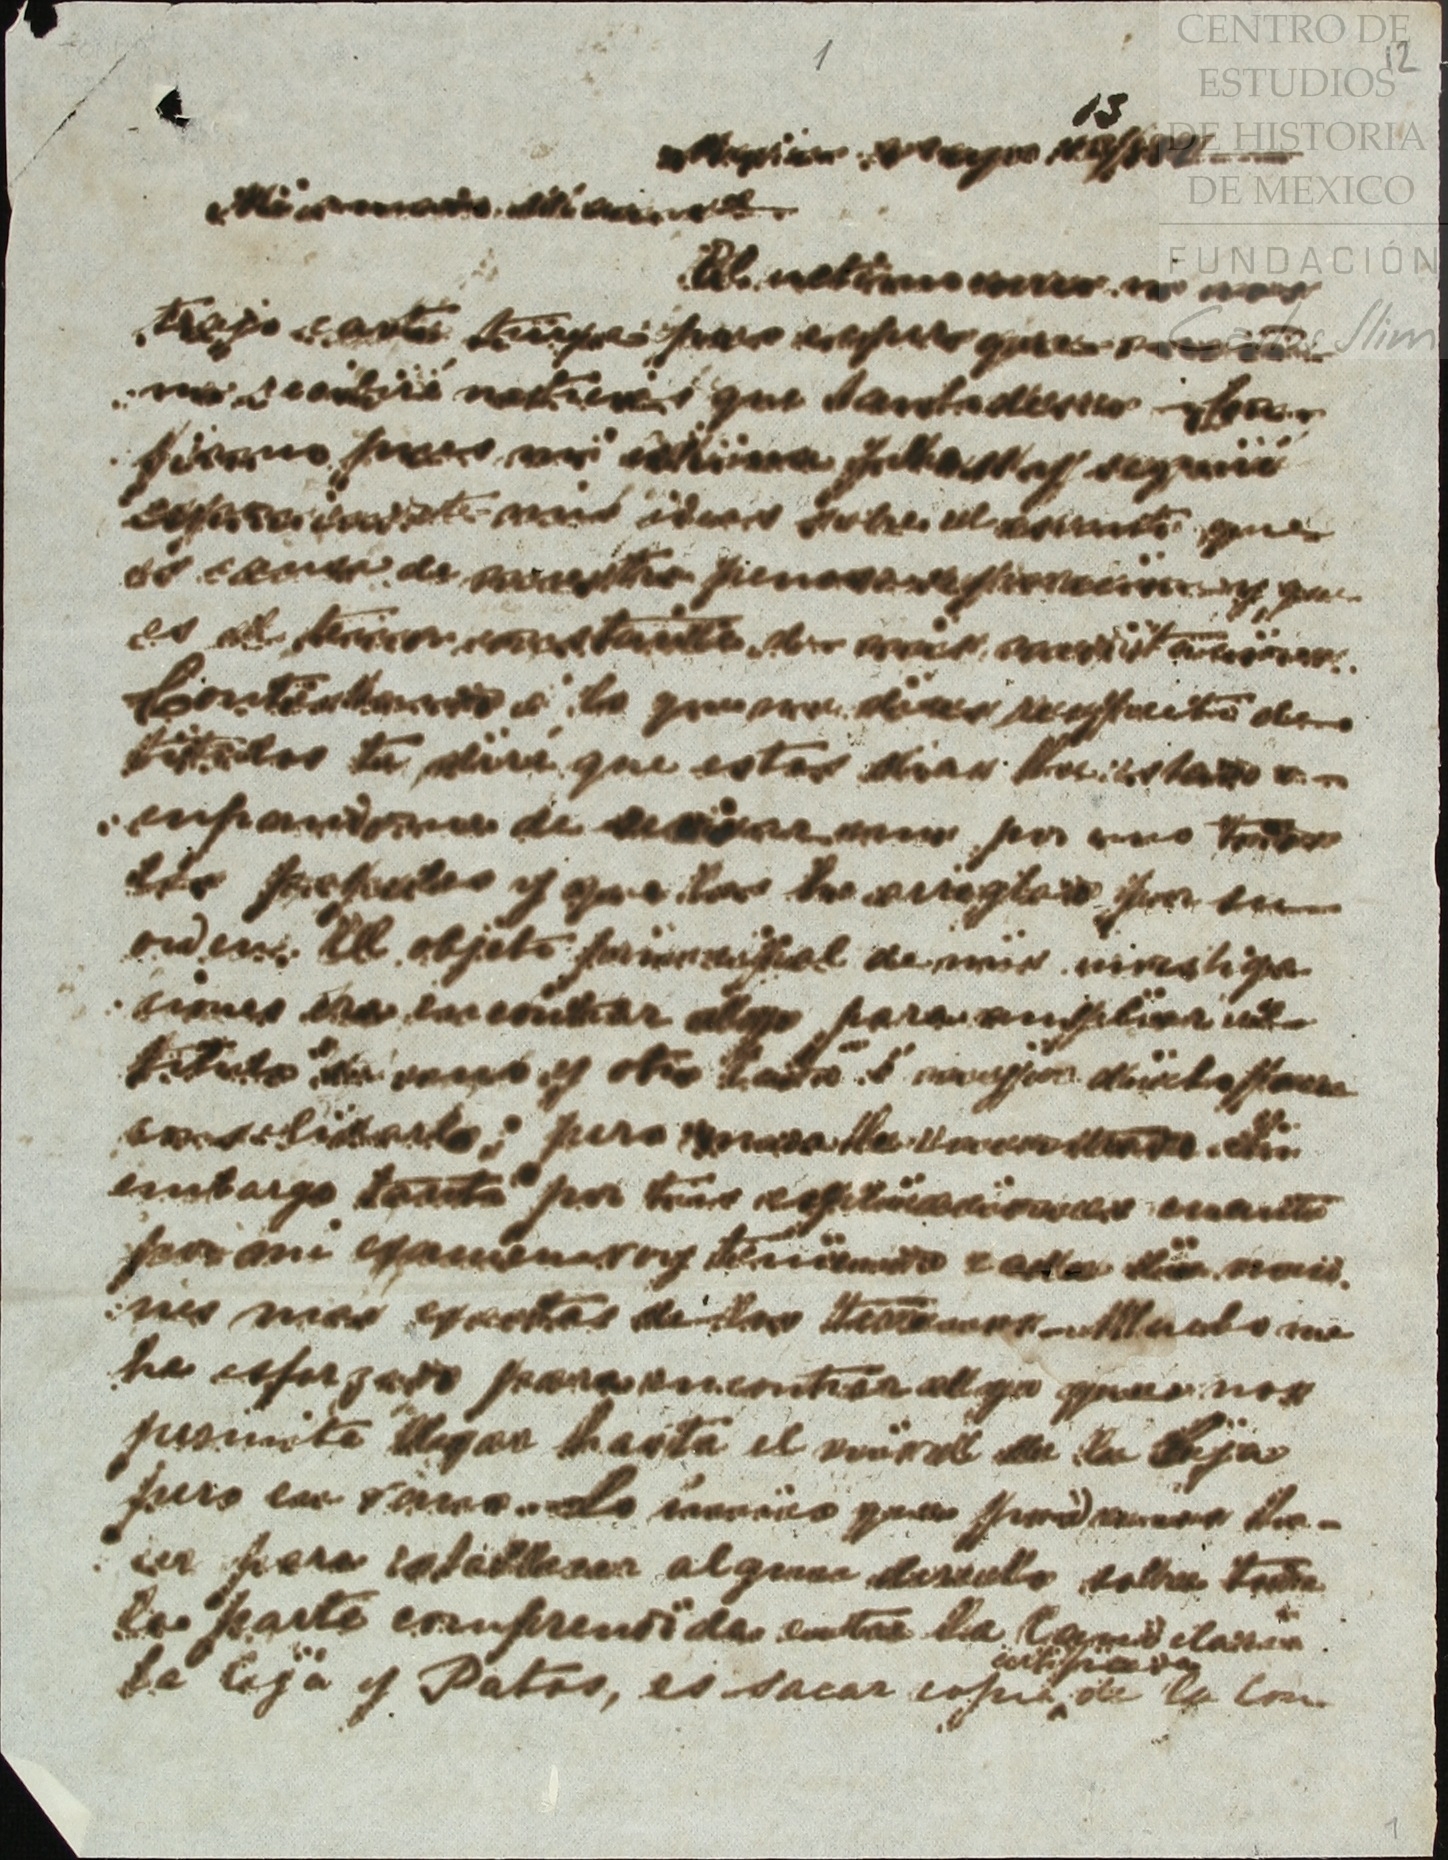 CENTRO DE
ESTUDIOS
DE HISTORIA
DE MEXICO
FUNDACIÓN
Carlos Slim
12
1
13
Mexico Mayo
Mi amado
El ultimo correo no nos
trajo carta tuya pues espero que
me recibiré noticias que tanto deseo
pues mi ultima
mis ideas sobre el asunto que
es causa de nuestra penosa separacion y que
es el tema constante de mis meditaciones.
Contestando á lo que me dices respecto de
titulos te diré que estos dias he estado o-
cupandome de revisar uno por uno todos
los papeles y que los he arreglado por su
orden. El objeto principal de mis investiga
ciones era encontrar algo para ampliar el
titulo de uno y otro lado ó mejor dicho para
consolidarlo; pero nada he encontrado. Sin
embargo tanto por tus esplicaciones cuanto
por mi examen voy teniendo cada dia nocio
nes mas exactas de los terrenos. Mucho me
he esforzado para encontrar algo que nos
permita llegar hasta el de la Leja
pero en vano. Lo unico que podemos ha-
cer para establecer algun derecho sobre toda
la parte comprendida entre la
la Leja y Patos, es sacar copia certificada de la con
1